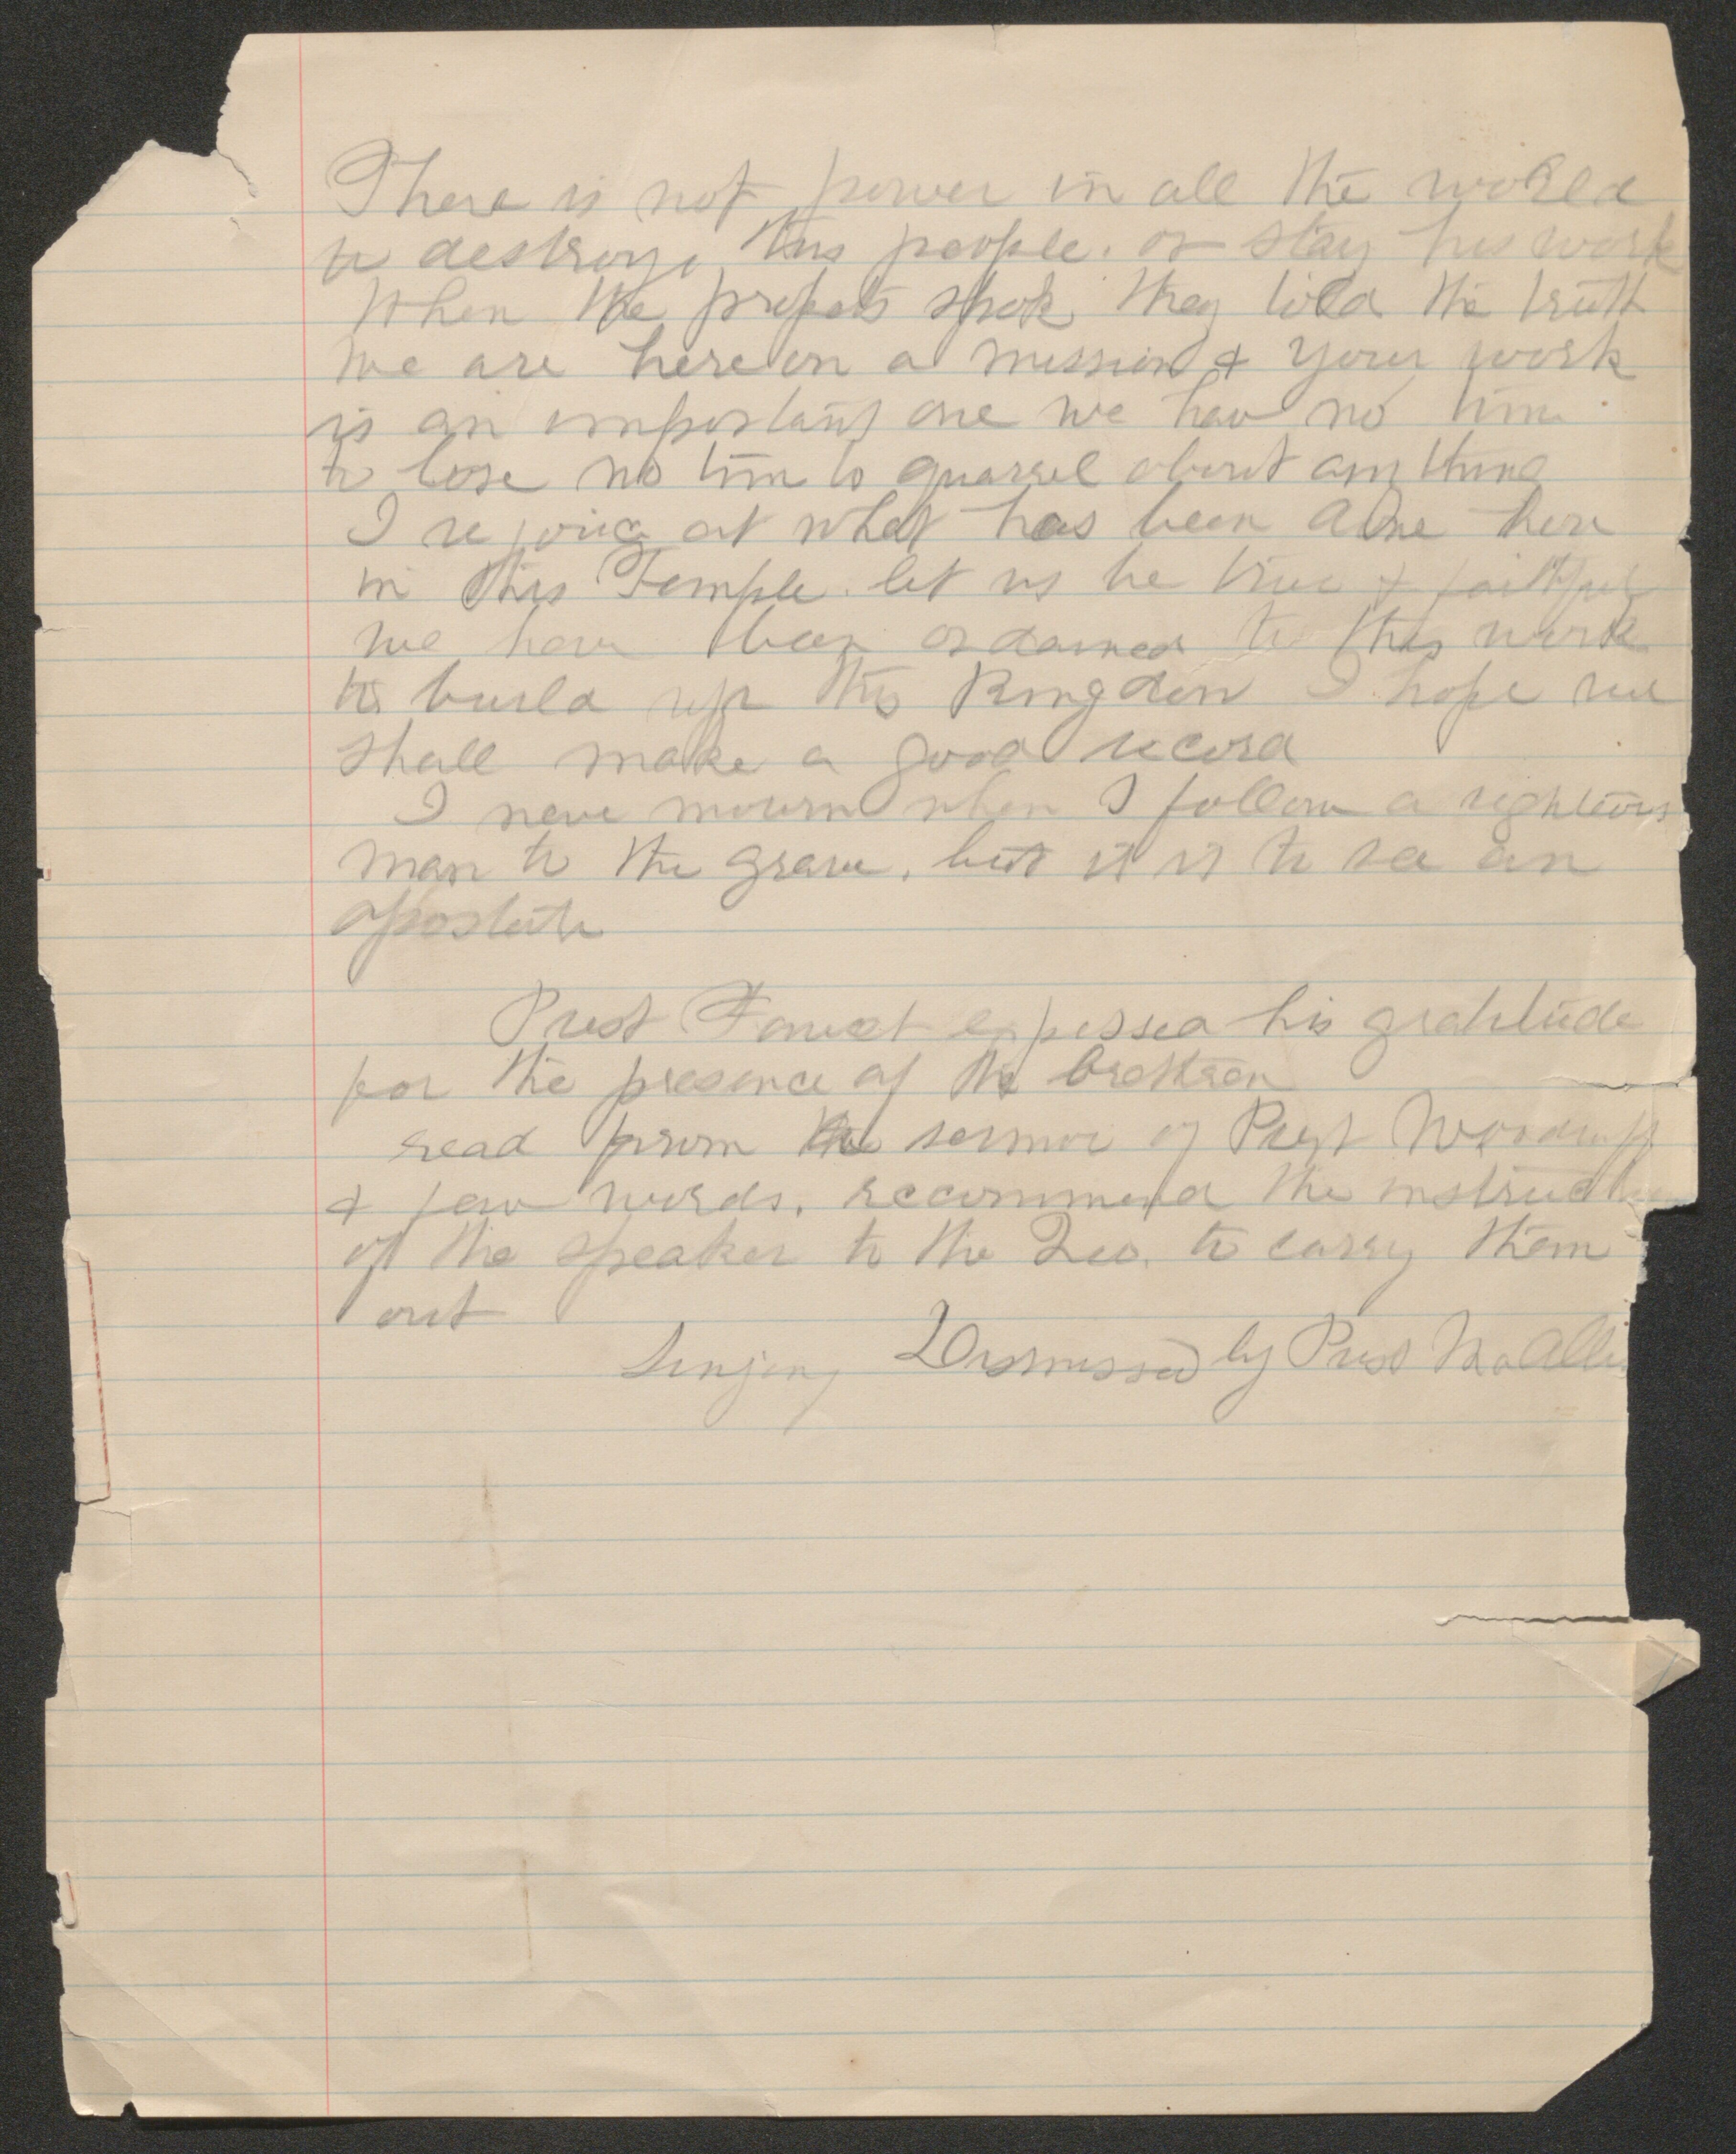 There is not power in all the world
to destroy, this people. or stay his work
When the prophets spok they told the truth
we are here on a mission & your work
is an important one we hav no time
to lose no tim to quarrel about any thing
I rejoice at what has been done here
in this Temple. let us be true & faithful
we have been ordained to this work
to build up this Kingdom I hope we
shall make a good record
I neve mourn when I follow a righteous
man to the grave, but it is to see an
apostate
Prest expressed his gratitude
for the presence of the brethren
read from the sermon of Prest Woodruff
a few words. recommend the instruction
of the speaker to the to carry them
out
Singing Dismissed by Prest McAllis